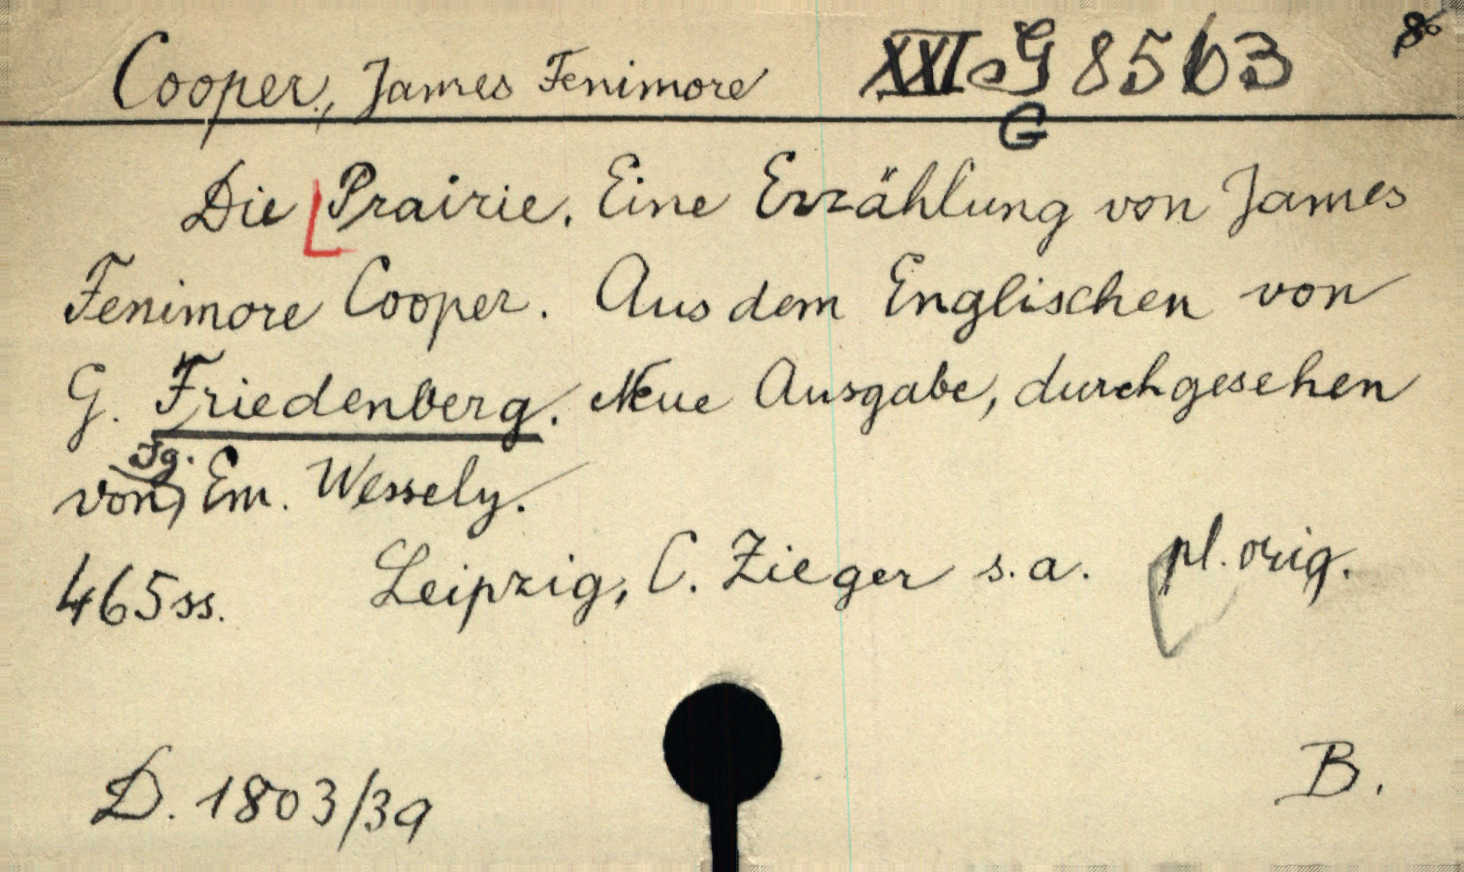 Cooper, James Fenimore XXI G 8563 8°
G
Die Prairie. Eine Erzählung von James
Fenimore Cooper. Aus dem Englischen von
G. Friedenberg. Neue Ausgabe, durchgesehen
von Ig. Em. Wessely.
465 ss. Leipzig, C. Zieger s.a. pl. orig.
D. 1803/39 B.